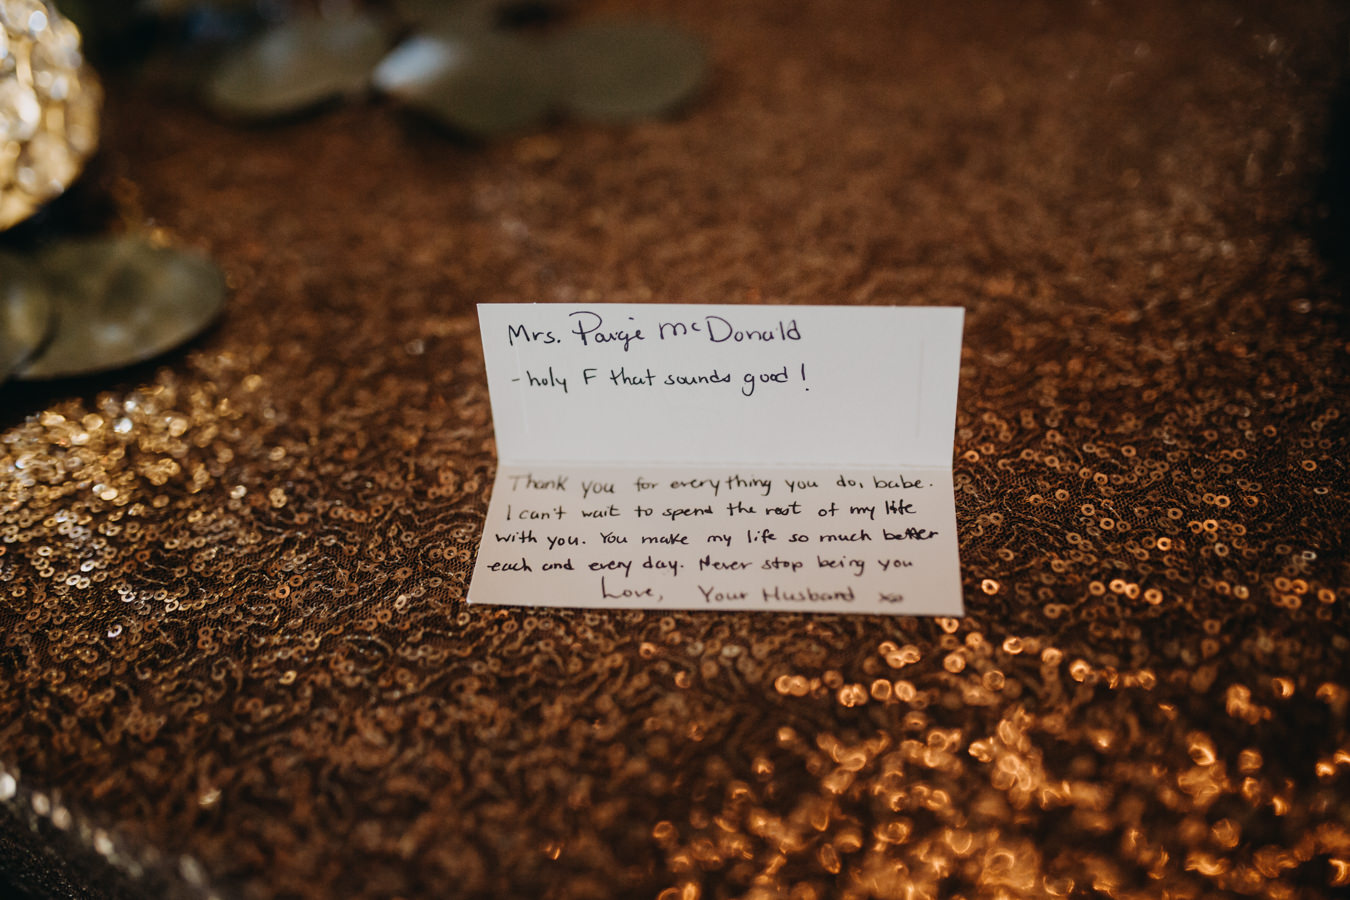 Mrs. Paige McDonald
- holy F that sounds good!
Thank you for everything you do, babe.
I can't wait to spend the rest of my life
with you. You make my life so much better
each and every day. Never stop being you
Love, Your Husband xo